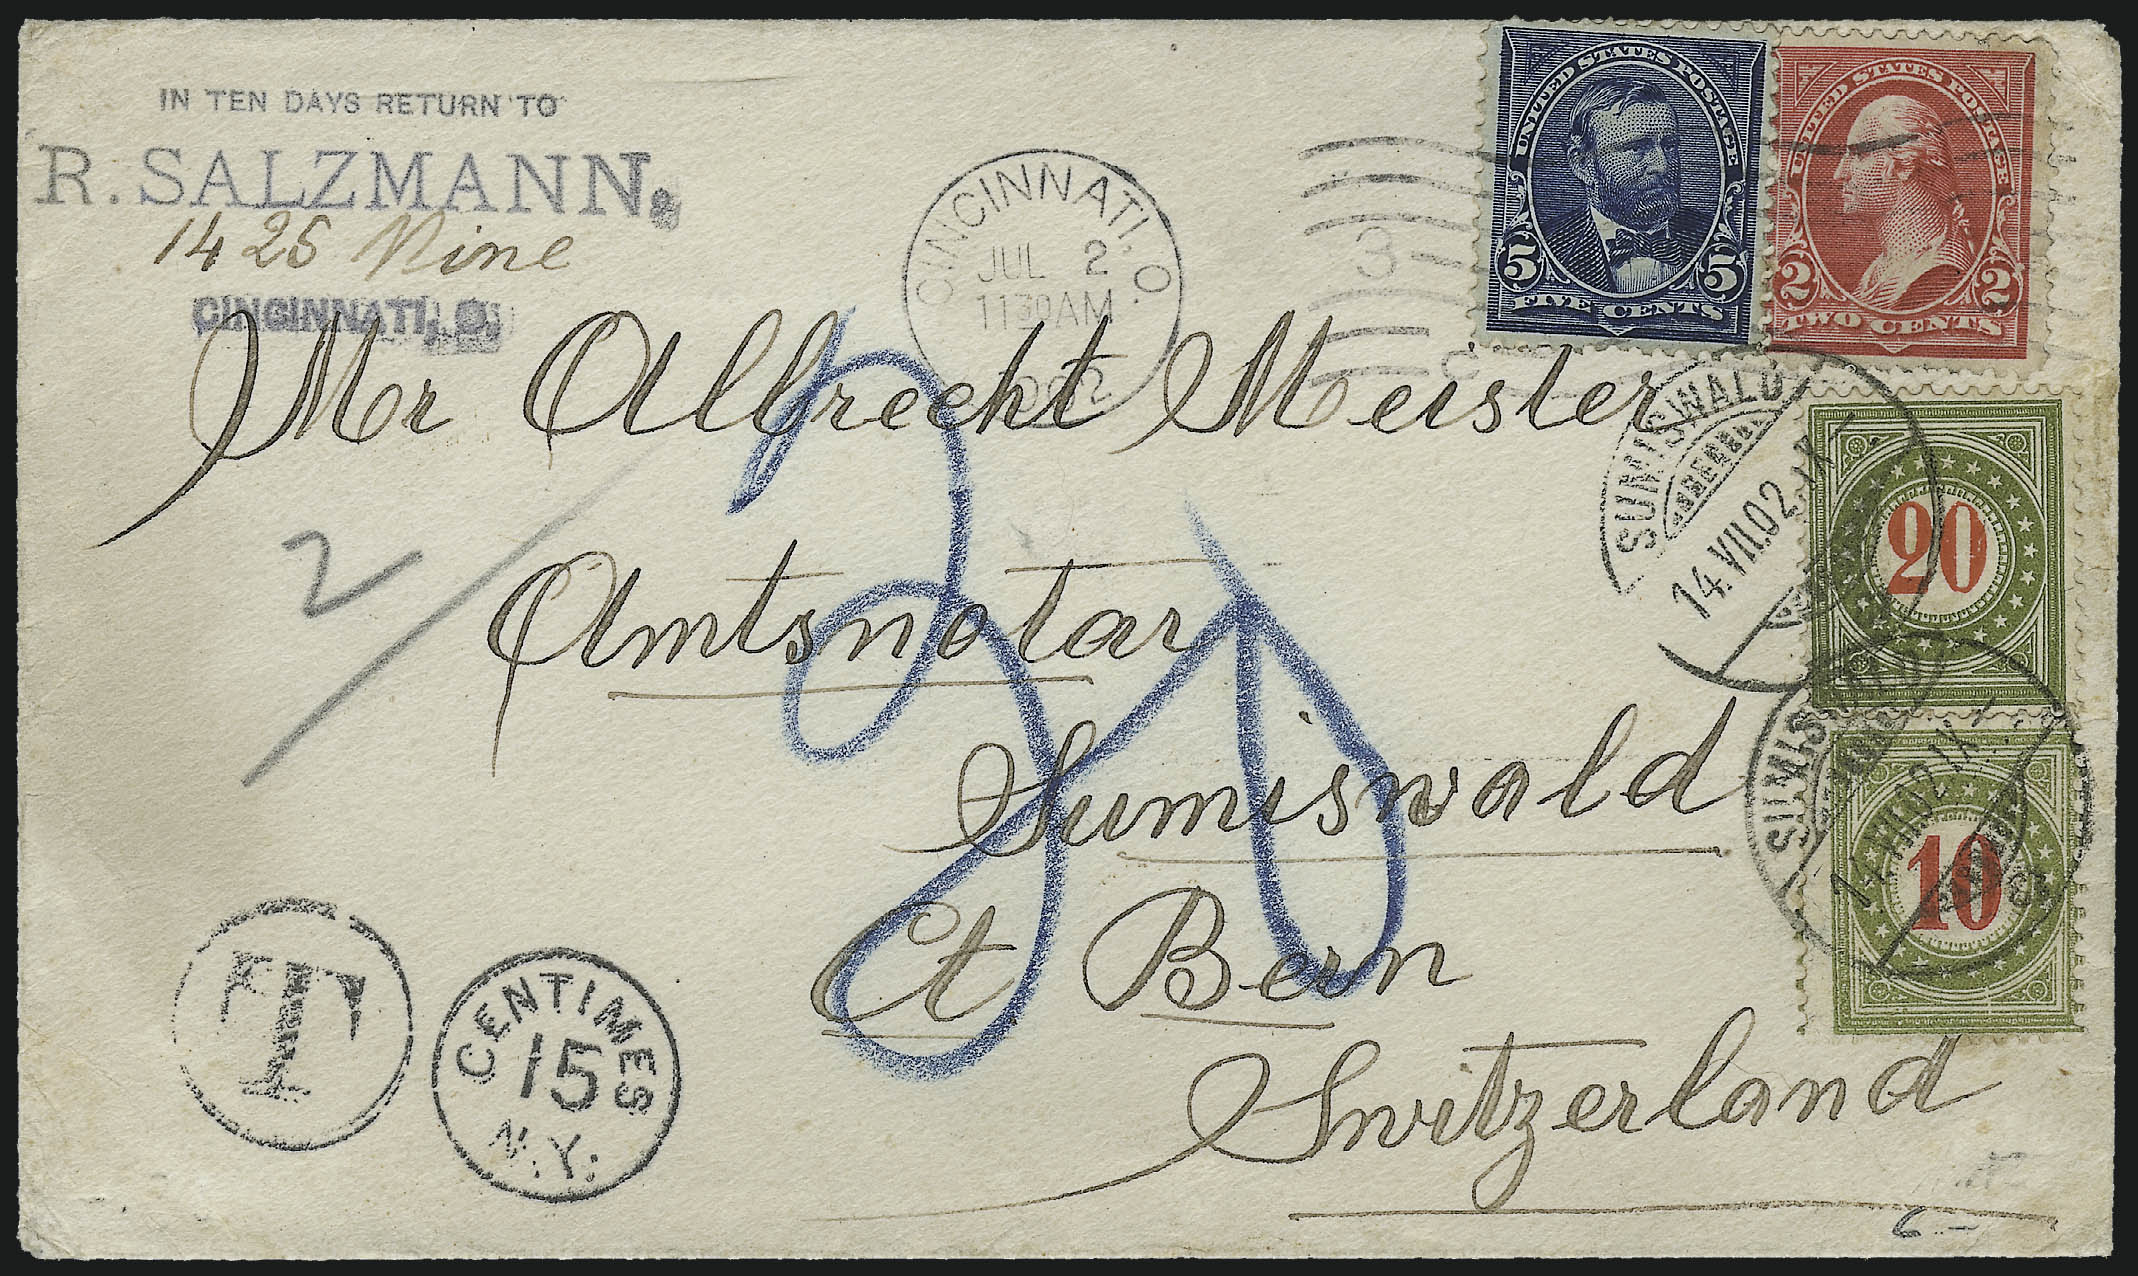 IN TEN DAYS RETURN TO
R. SALZMANN,
1425 Vine
CINCINNATI, O.
CINCINNATI, O.
JUL 2
1130AM
1902
3
UNITED STATES POSTAGE
5 5
FIVE CENTS
UNITED STATES POSTAGE
2 2
TWO CENTS
Mr Albrecht Meister
Amtsnotar
Sumiswald
Ct Bern
Switzerland
30
2
SUMISWALD
14.VII.02
20
SUMISWALD
14.VII.02
10
T
CENTIMES
15
N.Y.
6 -